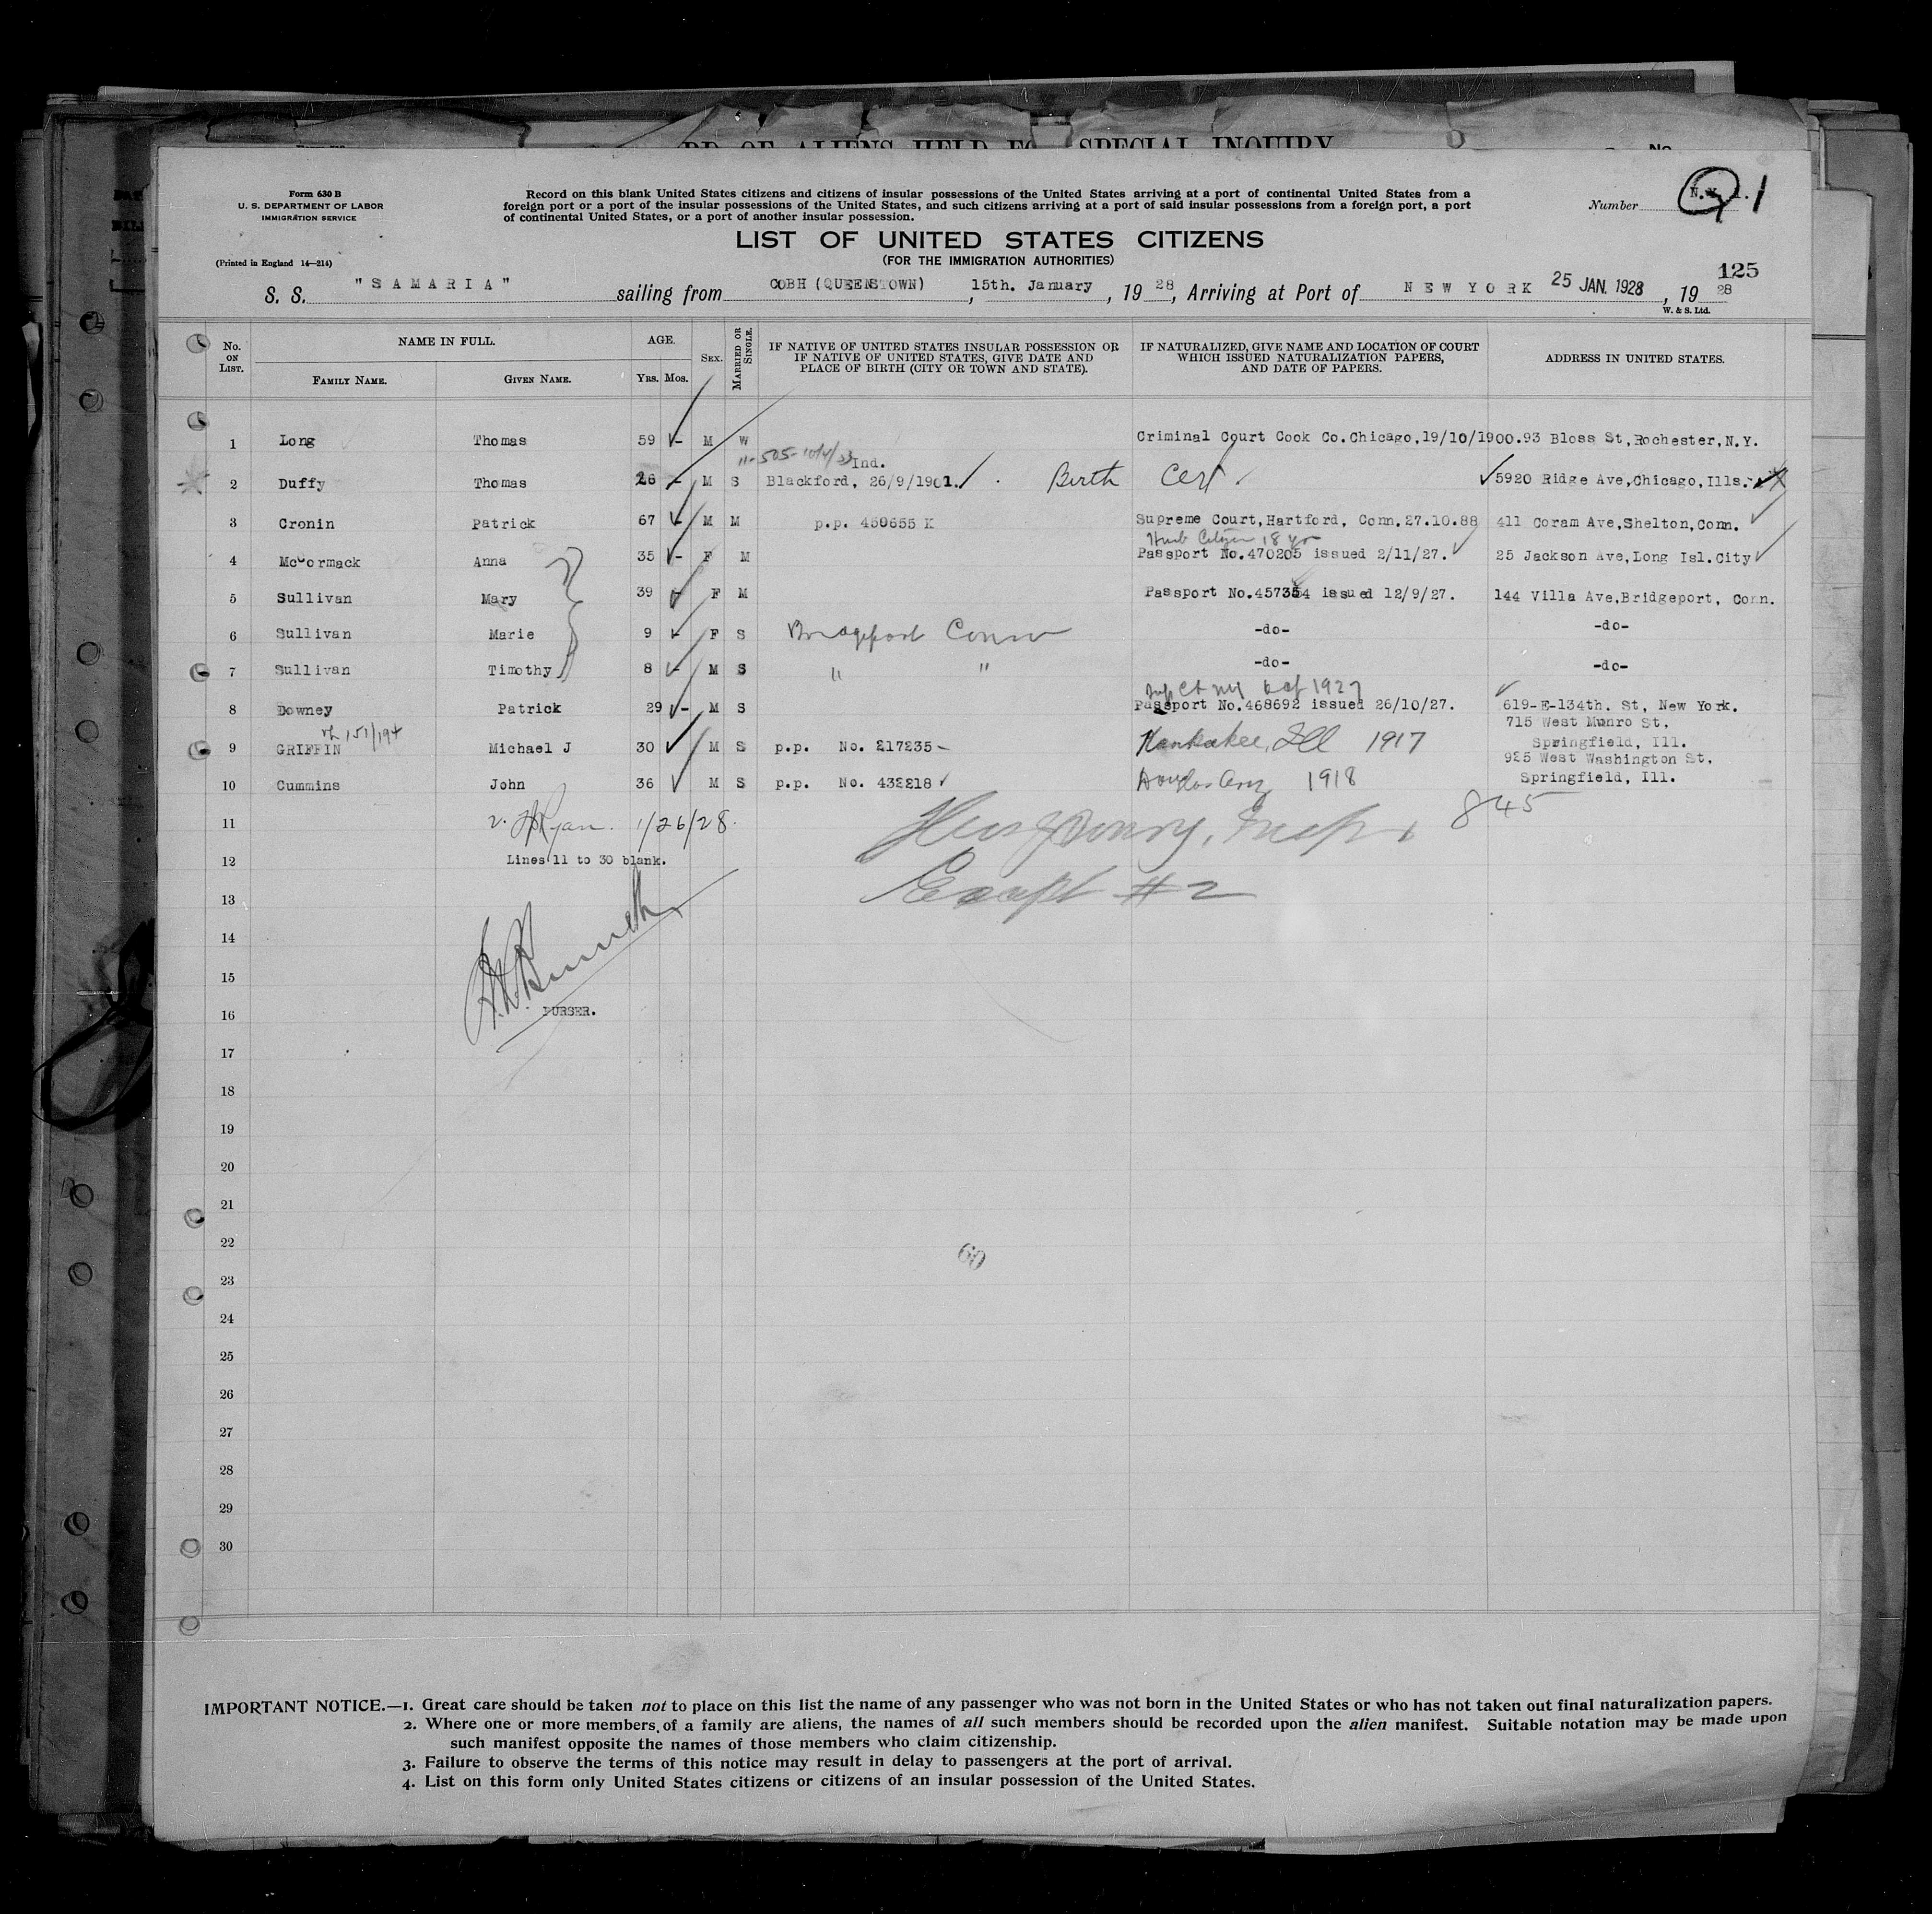 RD OF ALIENS HELD FO SPECIAL INQUIRY
No.
Form 630 B
U. S. DEPARTMENT OF LABOR
IMMIGRATION SERVICE
(Printed in England 14—214)
Record on this blank United States citizens and citizens of insular possessions of the United States arriving at a port of continental United States from a
foreign port or a port of the insular possessions of the United States, and such citizens arriving at a port of said insular possessions from a foreign port, a port
of continental United States, or a port of another insular possession.
Number N.Y. 1. 1
LIST OF UNITED STATES CITIZENS
(FOR THE IMMIGRATION AUTHORITIES)
125
S. S. "SAMARIA" sailing from COBH (QUEENSTOWN), 15th. January, 19 28, Arriving at Port of NEW YORK 25 JAN. 1928, 19 28
W. & S. Ltd.
No. ON LIST. NAME IN FULL. AGE. SEX. MARRIED OR SINGLE. IF NATIVE OF UNITED STATES INSULAR POSSESSION OR IF NATIVE OF UNITED STATES, GIVE DATE AND PLACE OF BIRTH (CITY OR TOWN AND STATE). IF NATURALIZED, GIVE NAME AND LOCATION OF COURT WHICH ISSUED NATURALIZATION PAPERS, AND DATE OF PAPERS. ADDRESS IN UNITED STATES.
FAMILY NAME. GIVEN NAME. YRS. MOS.
1 Long Thomas 59 - M W Criminal Court Cook Co.Chicago,19/10/1900. 93 Bloss St,Rochester,N.Y.
Ind.
2 Duffy Thomas 26 - M S Blackford, 26/9/1901. Birth Cert 5920 Ridge Ave,Chicago,Ills.
3 Cronin Patrick 67 - M M p.p. 450655 K Supreme Court,Hartford, Conn.27.10.88 411 Coram Ave,Shelton,Conn.
Husb Citizen 18 yrs
4 McCormack Anna 35 - F M Passport No.470205 issued 2/11/27. 25 Jackson Ave,Long Isl.City
5 Sullivan Mary 39 - F M Passport No.457354 issued 12/9/27. 144 Villa Ave,Bridgeport, Conn.
6 Sullivan Marie 9 - F S Bridgeport Conn -do- -do-
7 Sullivan Timothy 8 - M S " " -do- -do-
Sup Ct NY Oct 1927
8 Downey Patrick 29 - M S Passport No.468692 issued 26/10/27. 619-E-134th. St, New York.
151/194
715 West Munro St,
9 GRIFFIN Michael J 30 M S p.p. No. 217235 - Kankakee, Ill 1917 Springfield, Ill.
925 West Washington St,
10 Cummins John 36 M S p.p. No. 432218 Douglas Ariz 1918 Springfield, Ill.
11 Ryan. 1/26/28. Insp. 845
12 Lines 11 to 30 blank.
13 Except #2
14
15
16 PURSER.
17
18
19
20
21
22
60
23
24
25
26
27
28
29
30
IMPORTANT NOTICE.—1. Great care should be taken not to place on this list the name of any passenger who was not born in the United States or who has not taken out final naturalization papers.
2. Where one or more members of a family are aliens, the names of all such members should be recorded upon the alien manifest. Suitable notation may be made upon
such manifest opposite the names of those members who claim citizenship.
3. Failure to observe the terms of this notice may result in delay to passengers at the port of arrival.
4. List on this form only United States citizens or citizens of an insular possession of the United States.